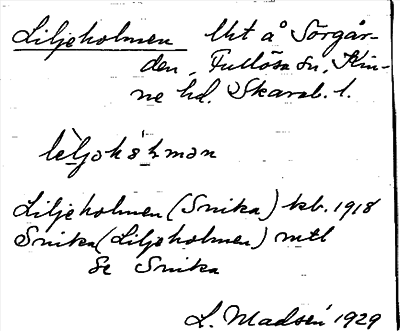 Liljeholmen Uht å Sörgår-
den, Fullösa sn, Kin-
ne hd. Skarab. l.
Liljeholmen (Snika) kb. 1918
Snika (Liljeholmen) mtl
Se Snika
L. Madsén 1929